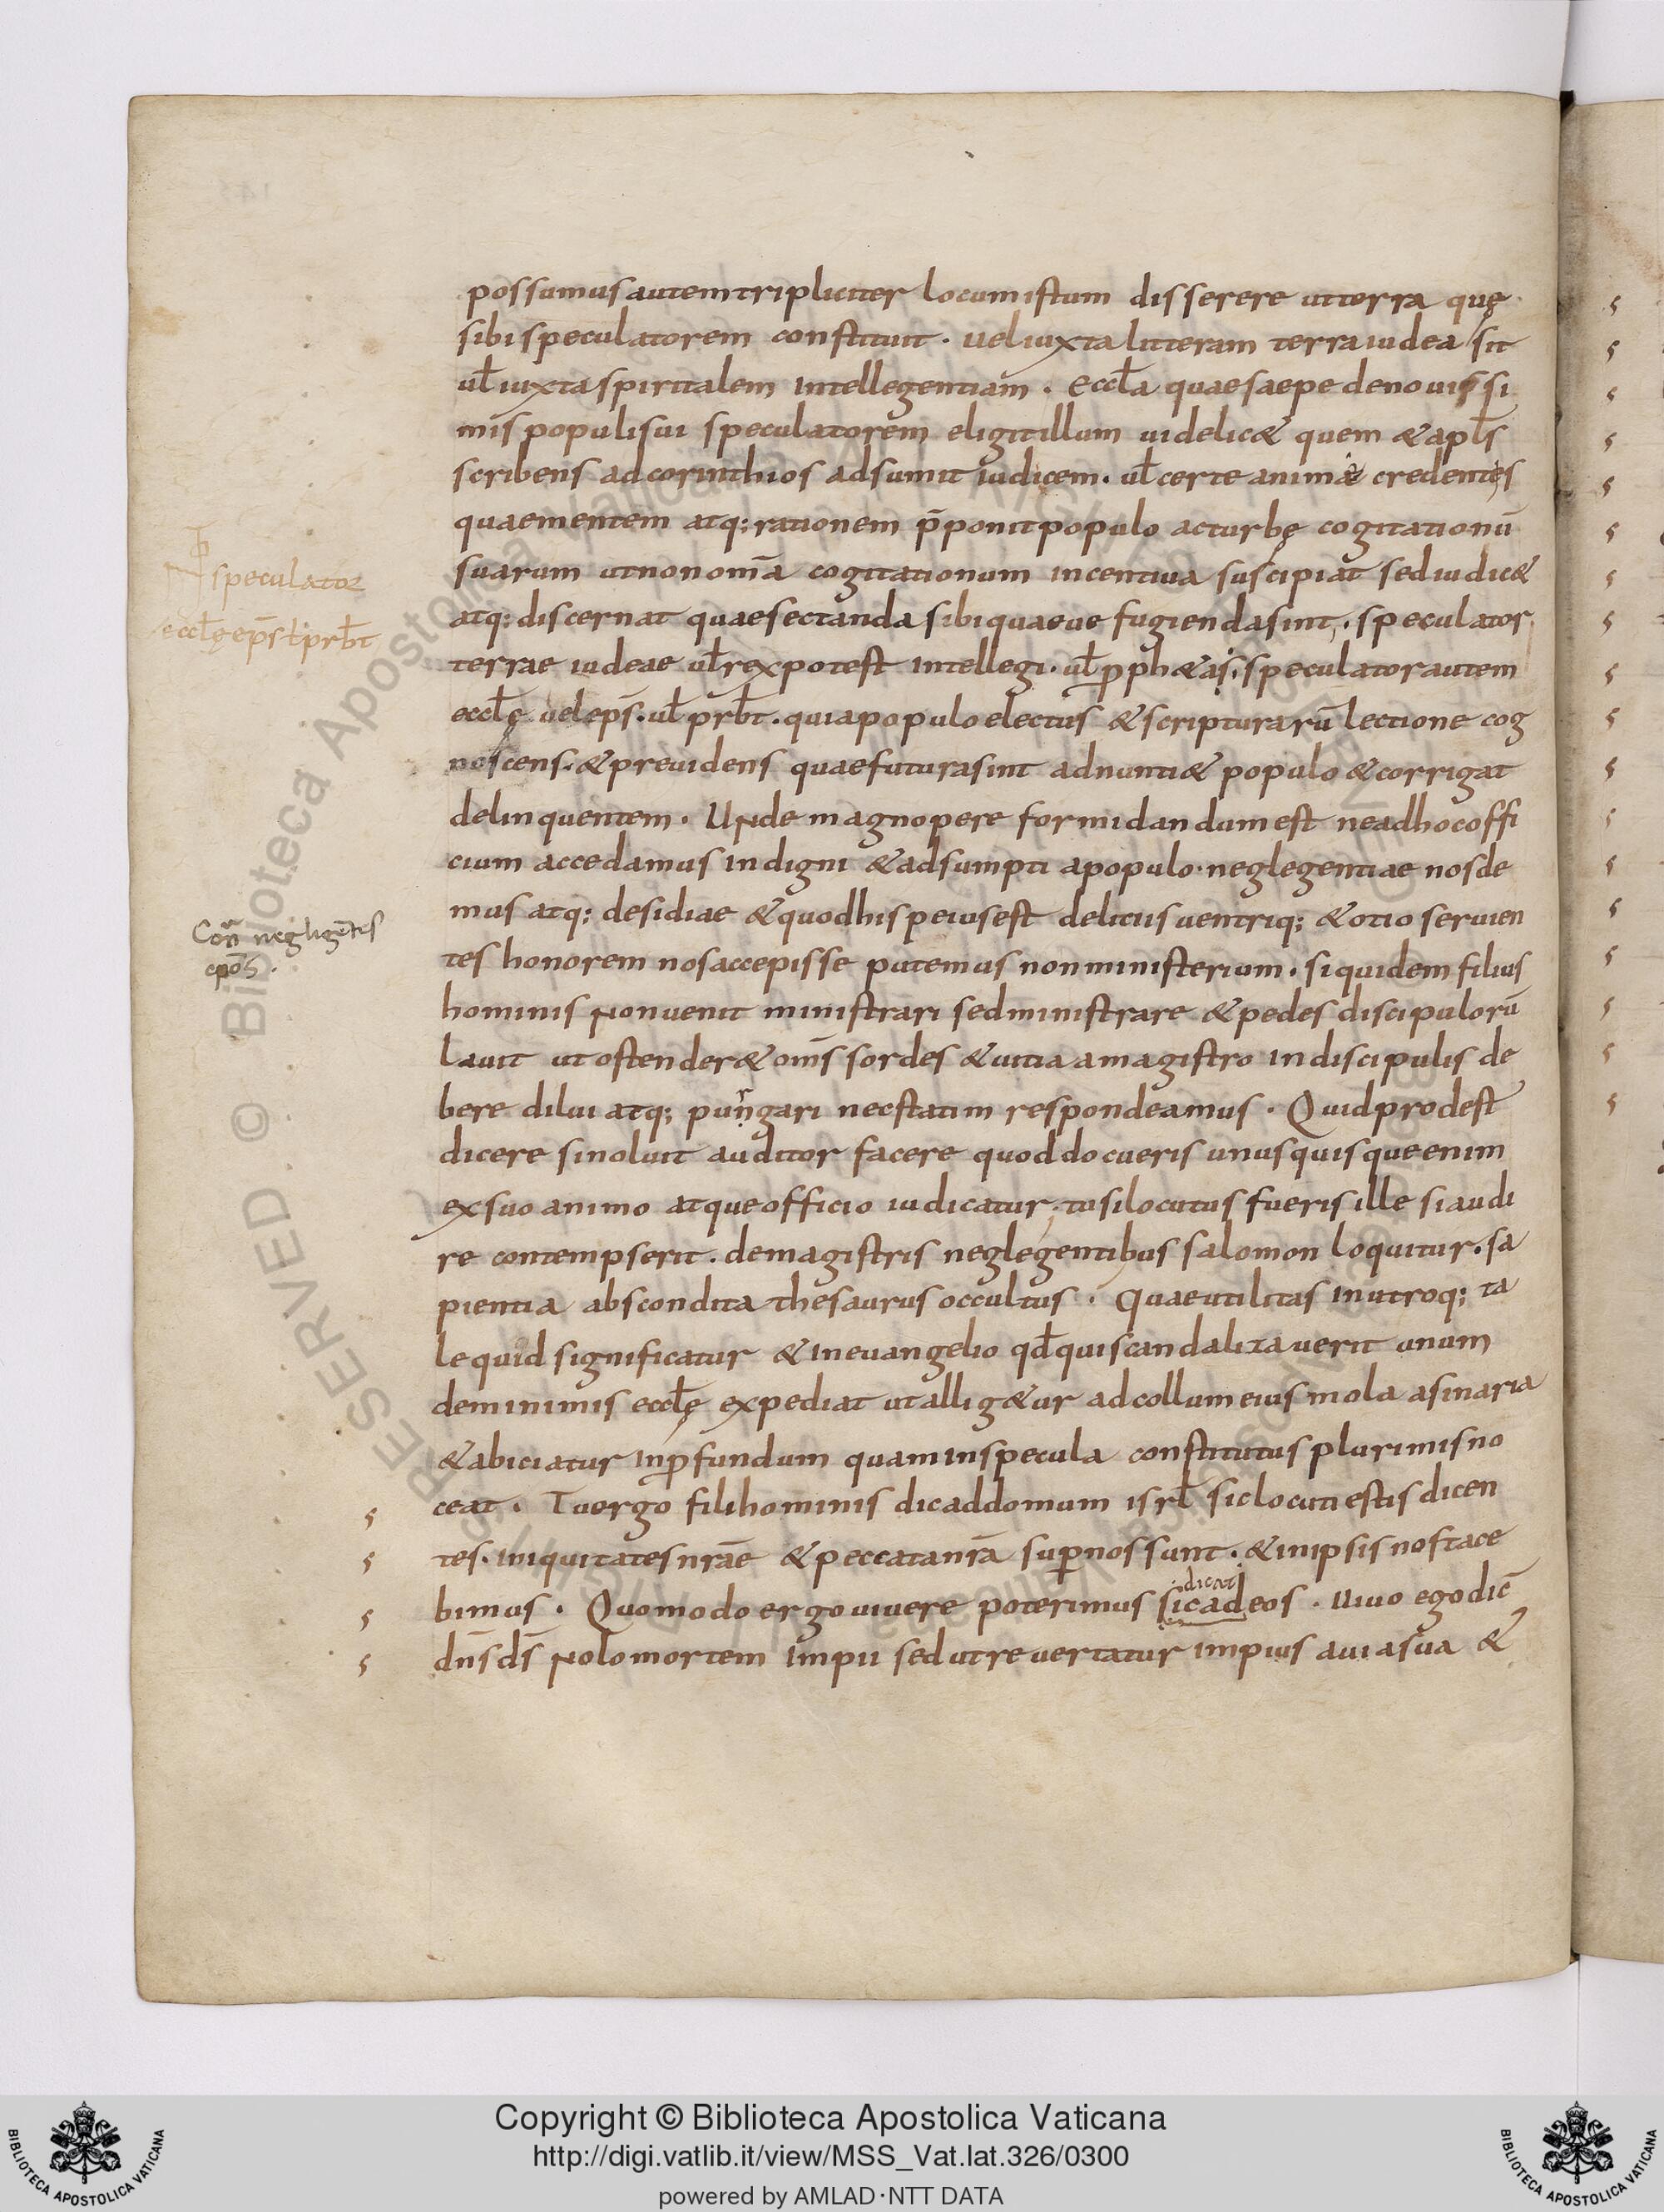 possumus autem tripliciter locum istum disserere ut terra quę
sibi speculatorem constituit · uel iuxta litteram terra iudea sit
ul̄ iuxta spiritalem intellegentiam · eccl̄a quae saepe de nouissi
mis populi sui speculatorem eligit illum uidelic& quem & apl̄s
scribens ad corinthios adsumit iudicem · ul̄ certe animæ credentes
quae mentem atq; rationem p̄ponit populo ac turbę cogitationū
suarum ut non om̄a cogitationum incentiua suscipiat sed iudic&
atq; discernat quae sectanda sibi quaeue fugienda sint · speculator
terrae iudeae ul̄ rex potest intellegi · ul̄ ꝓph&as · speculator autem
eccl̄ę uel ep̄s · ul̄ prb̄t · qui a populo electus & scripturarū lectione cog
noscens · & preuidens quae futura sint adnunti& populo & corrigat
delinquentem · Unde magnopere formidandum est ne ad hoc offi
cium accedamus indigni & adsumpti a populo · neglegentiae nos de
mus atq; desidiae & quod his peius est deliciis uentriq; & otio seruien
tes honorem nos accepisse putemus non ministerium · siquidem filius
hominis non uenit ministrari sed ministrare & pedes discipulorū
lauit ut ostender& om̄s sordes & uitia a magistro in discipulis de
bere dilui atq; purgari nec statim respondeamus · Quid prodest
dicere si noluit auditor facere quod docueris unusquisque enim
ex suo animo atque officio iudicatur · tu si locutus fueris ille si audi
re contempserit · de magistris neglegentibus salomon loquitur · sa
pientia abscondita thesaurus occultus · Quae utilitas in utroq; ta
le quid significatur & in euangelio qd̄ qui scandalizauerit unum
de minimis eccl̄ę expediat ut allig&ur ad collum eius mola asinaria
& abiciatur in ꝓfundum quam in specula constitutus plurimis no
ceat · Tu ergo fili hominis dic ad domum isrl̄ sic locuti estis dicen
tes · iniquitates nr̄ae & peccata nr̄a suꝑ nos sunt · & in ipsis nos tace
bimus · Quomodo ergo uiuere poterimus sic ad eos · Uiuo ego dic̄
dicat
dn̄s ds̄ nolo mortem impii sed ut reuertatur impius a uia sua &
speculator
eccl̄ę ep̄s ł prb̄t
Con̄ negligētes
ep̄os.
Copyright © Biblioteca Apostolica Vaticana
http://digi.vatlib.it/view/MSS_Vat.lat.326/0300
powered by AMLAD·NTT DATA
BIBLIOTECA APOSTOLICA VATICANA
BIBLIOTECA APOSTOLICA VATICANA